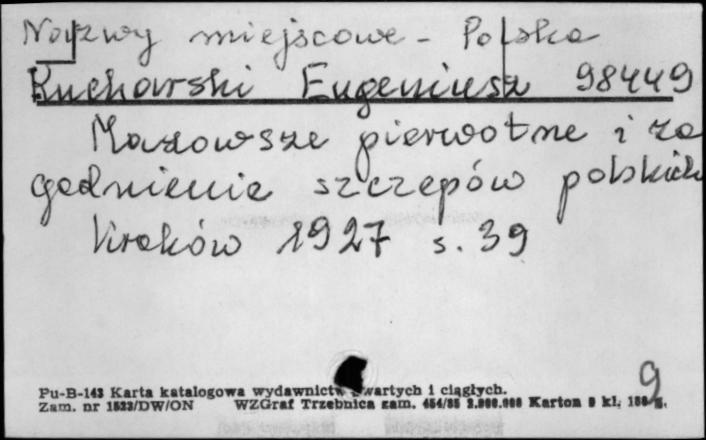 Nazwy miejscowe - Polska
Kucharski Eugeniusz 98449
Mazowsze pierwotne i za
gadnienie szczepów polskich
Kraków 1927 s. 39
9
Pu-B-143 Karta katalogowa wydawnictw zwartych i ciągłych.
Zam. nr 1523/DW/ON WZGraf Trzebnica zam. 454/85 2.000.000 Karton kl.